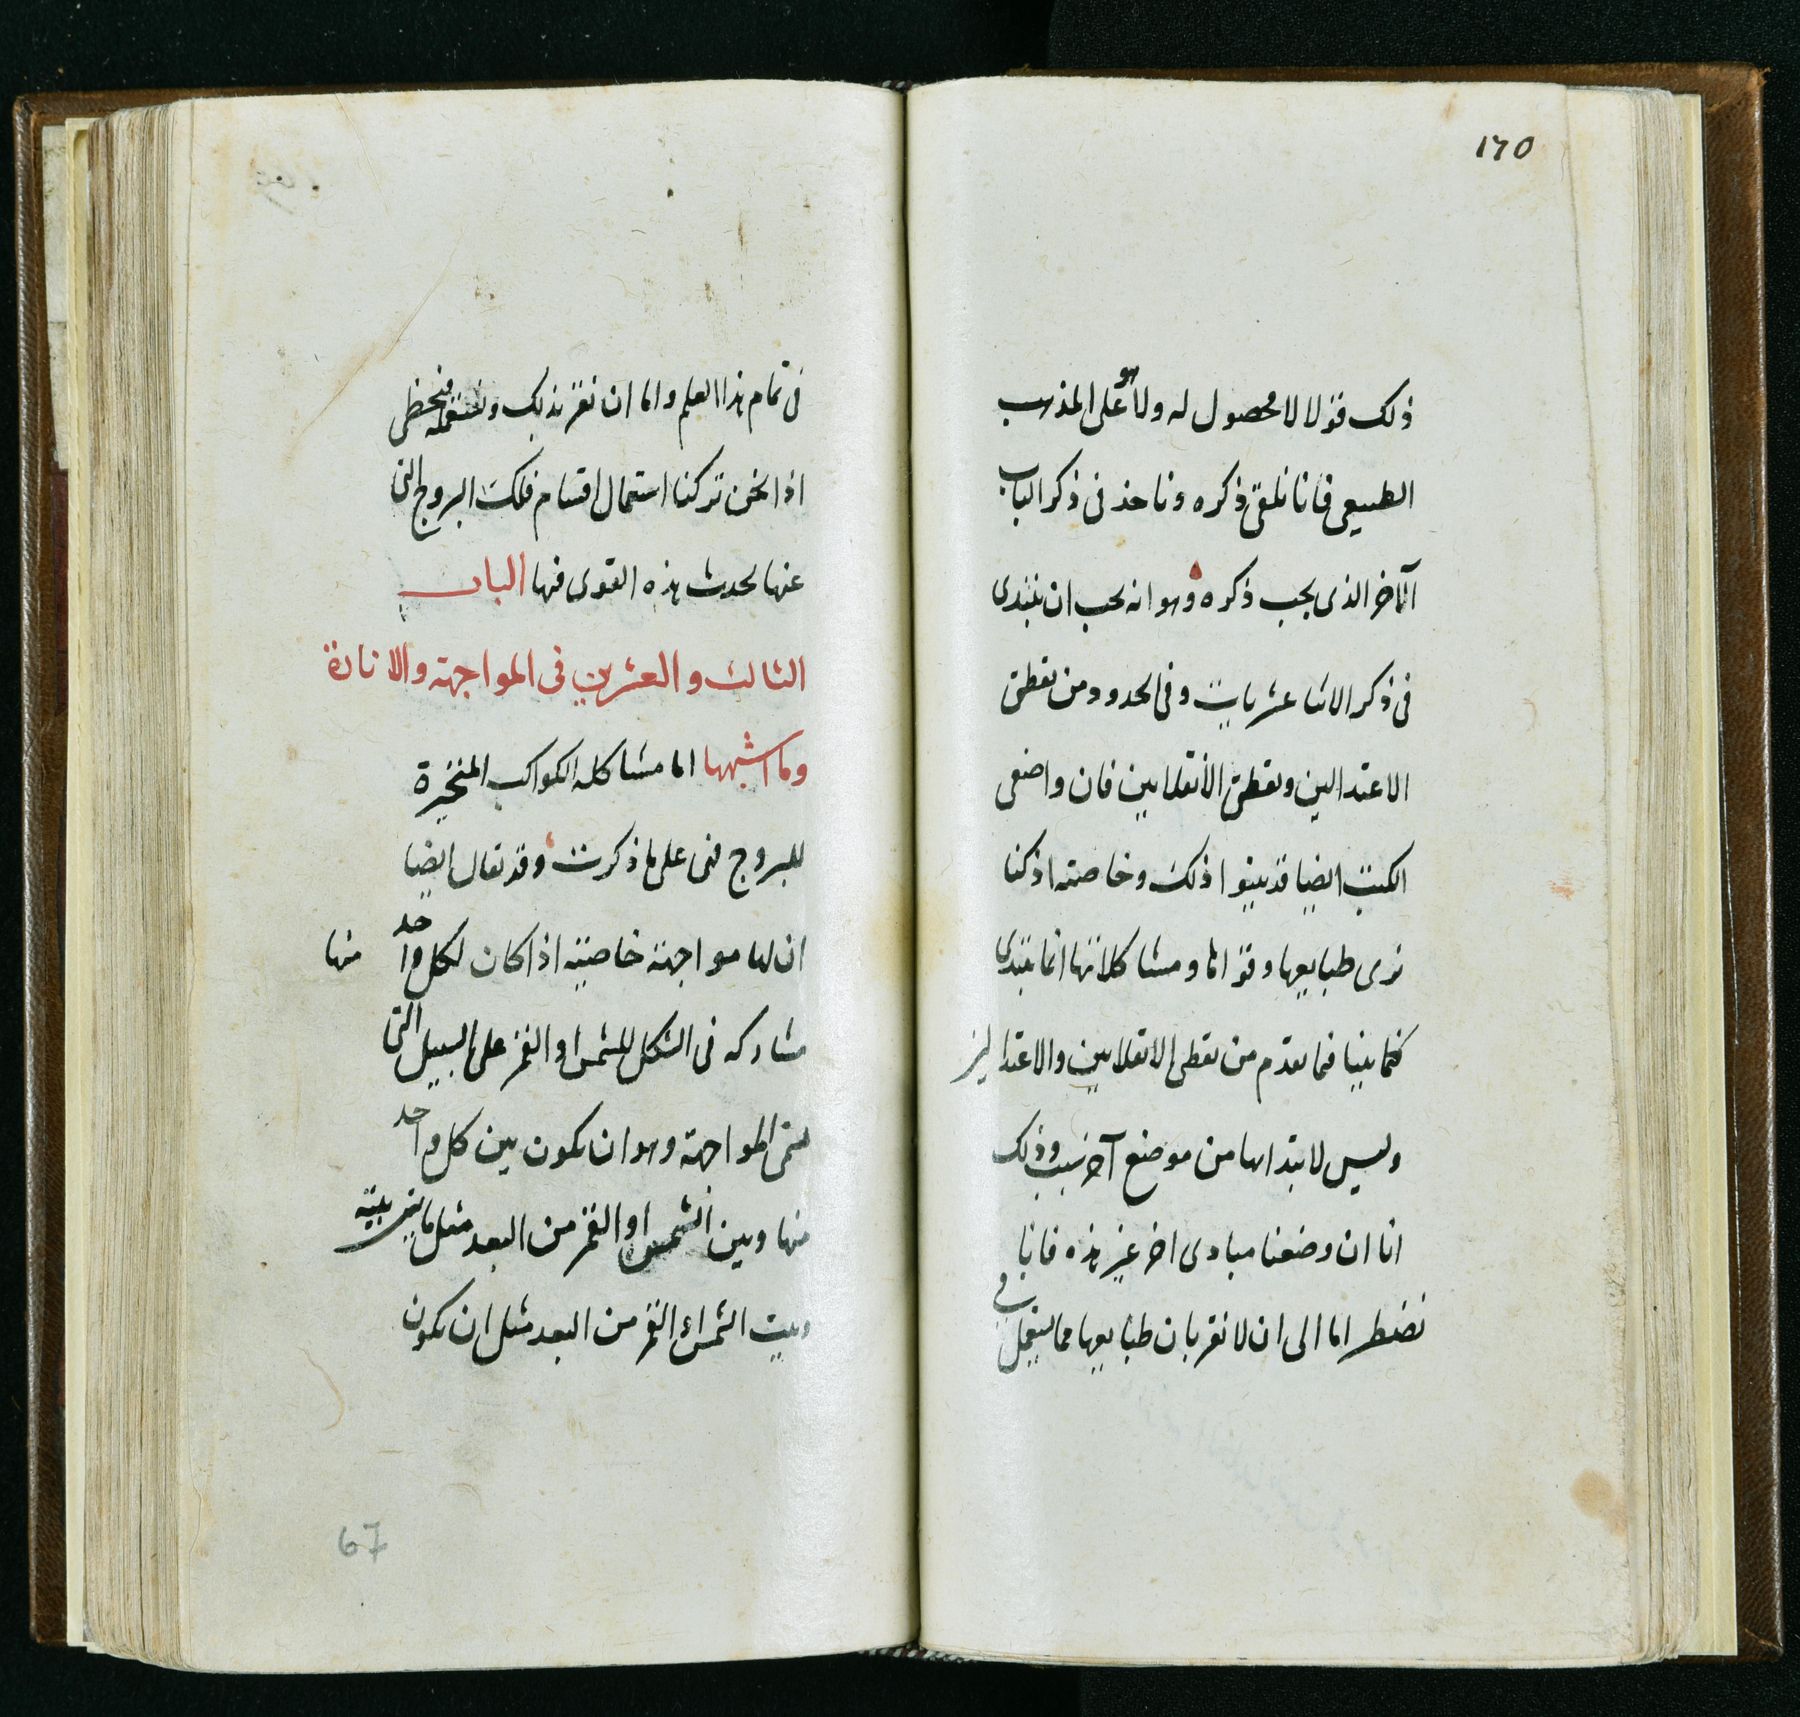 ١٢٥
ذلك قولا لا محصول له ولا هو على المذهب
الطبيعي فانا نلقى ذكره وناخذ في ذكر الباب
الآخر الذي يجب ذكره وهو انه يجب ان نبتدى
في ذكر الاثنا عشريات وفي الحدود من نقطتى
الاعتدالين ونقطتى الانقلابين فان واضعى
الكتب ايضا قد بينوا ذلك وخاصته اذ كنا
نرى طبايعها وقواها ومشاكلاتها انما تبتدى
كما بينا فيما تقدم من نقطى الانقلابين والاعتدالين
وليس لابتدائها من موضع آخر سبب وذلك
انا ان وضعنا مبادى اخر غير هذه فانا
نضطر اما الى ان لا نقر بان طبايعها مما يستعمل في
في تمام هذا العلم واما ان نقر بذلك ونستعمله فنخطى
اذا نحن تركنا استعمال اقسام فلك البروج التى
عنها تحدث هذه القوى فيها الباب
الثالث والعشرين في المواجهة والانارة
وما اشبهها اما مشاكله الكواكب المتحيرة
للبروج فهى على ما ذكرت وقد يقال ايضا
ان لها مواجهة خاصيته اذا كان لكل واحد منها
مشاركه في الشكل للشمس او القمر على السبيل التى
تسمى المواجهة وهو ان يكون بين كل واحد
منها وبين الشمس او القمر من البعد مثل ما بين بيته
وبيت الشمس او القمر من البعد مثل ان يكون
67